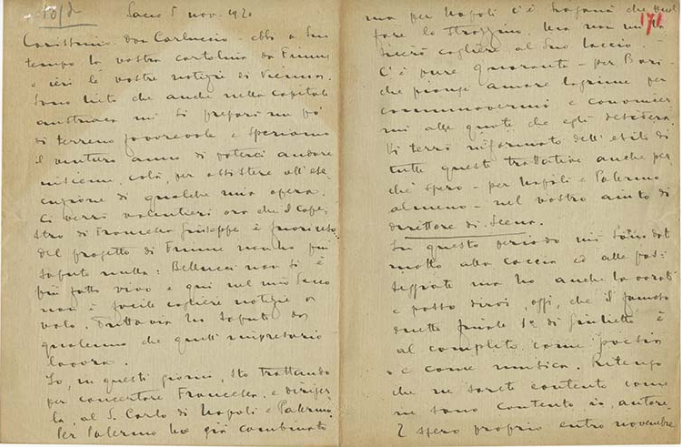 Laco 5 nov. 1920
Carissimo don Carluccio - ebbi a suo
tempo la vostra cartolina da Fiume
e ieri le vostre notizie di Vienna.
Sono lieto che anche nella capitale
austriaca mi si prepari un pò
di terreno favorevole e speriamo
il venturo anno di poterci andare
insieme, colà, per assistere all'ese
cuzione di qualche mia opera.
Ci verrò volentieri ora che il cape-
stro di Francesco Giuseppe è
del progetto di Fiume non ho più
saputo nulla: Bellucci non si è
più fatto vivo e qui nel mio Laco
non è facile cogliere notizie a
volo. Tuttavia ho saputo da
qualcuno che quell'impresario
lavora.
Io, in questi giorni, sto trattando
per concertare Francesca, e diriger
la, al S. Carlo di Napoli e Palermo.
Per Palermo ho già combinato
171
ma per Napoli c'è Laganà che vuol
fare lo strozzino. Ma non mi la
scerò cogliere al suo laccio.
C'è pure Quaranta - per Bari -
che piange amare lagrime per
commuovermi e
mi alle quote che egli desidera.
Vi terrò informato dell'esito di
tutte queste trattative anche per
chè spero - per Napoli e Palermo
almeno - nel vostro aiuto di
direttore di scena.
In questo periodo mi son dat
molto alla caccia ed alle pas-
seggiate ma ho anche lavorato
e posso dirvi, oggi, che il famoso
duetto finale 1º di Giulietta è
al completo come poesia
e come musica. Ritengo
che ne sarete contento come
ne sono contento io, autore.
E spero proprio entro novembre